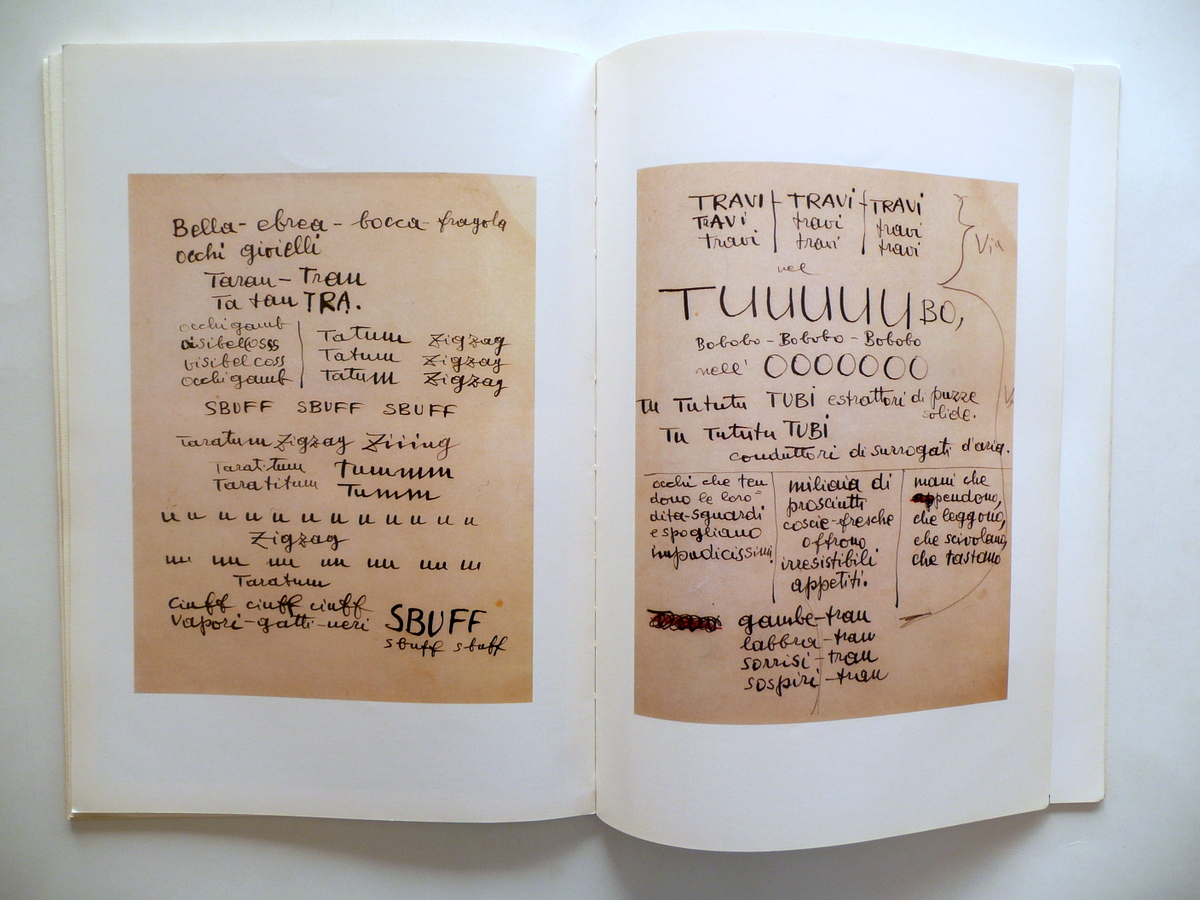 Bella- ebrea - bocca- fragola
occhi gioielli
Taran-Tran
Ta tan TRA.
occhi gamb
visibelcoss
visibelcoss
occhi gamb
Tatum Zigzag
Tatum Zigzag
Tatum Zigzag
SBUFF SBUFF SBUFF
Taratum Zigzag Ziiing
Taratitum Tummm
Taratitum Tumm
u u u u u u u u u u u u
Zigzag
uu uu uu uu uu uu uu
Taratum
ciuff ciuff ciuff
vapori-gatti-neri SBUFF
sbuff sbuff
TRAVI TRAVI TRAVI
TRAVI travi travi
travi travi travi
Via
nel
TUUUUUBO,
Bobobo - Bobobo - Bobobo
nell' OOOOOOO
Tu Tututu TUBI estrattori di puzze
solide.
Tu Tututu TUBI
conduttori di surrogati d'aria.
occhi che ten
dono le loro=
dita-sguardi
e spogliano
impudicissimi
miliaia di
prosciutti
coscie-fresche
offrono
irresistibili
appetiti.
mani che
appendono,
che leggono,
che scivolano,
che tastano
gambe-tran
labbra-tran
sorrisi-tran
sospiri-tran